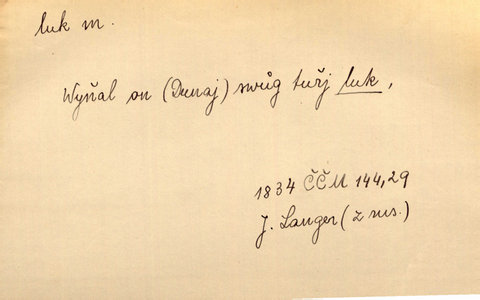 luk m.
Wyňal on (Dunaj) swůg tuřj luk,
1834 ČČM 144,29
J. Langer (z rus.)